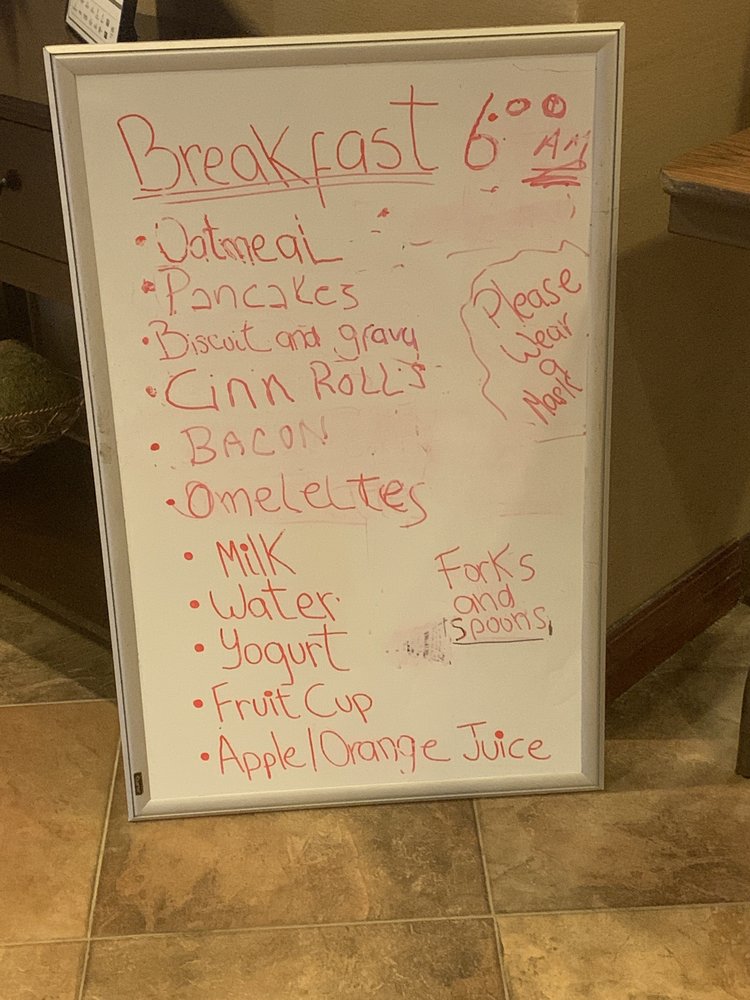 Breakfast 6:00 AM
• Oatmeal
• Pancakes
• Biscuit and gravy
• Cinn ROLLS
• BACON
• Omelelttes
• Milk
• Water
• Yogurt
• Fruit Cup
• Apple/Orange Juice
Please
Wear
a
Mask
Forks
and
spoons